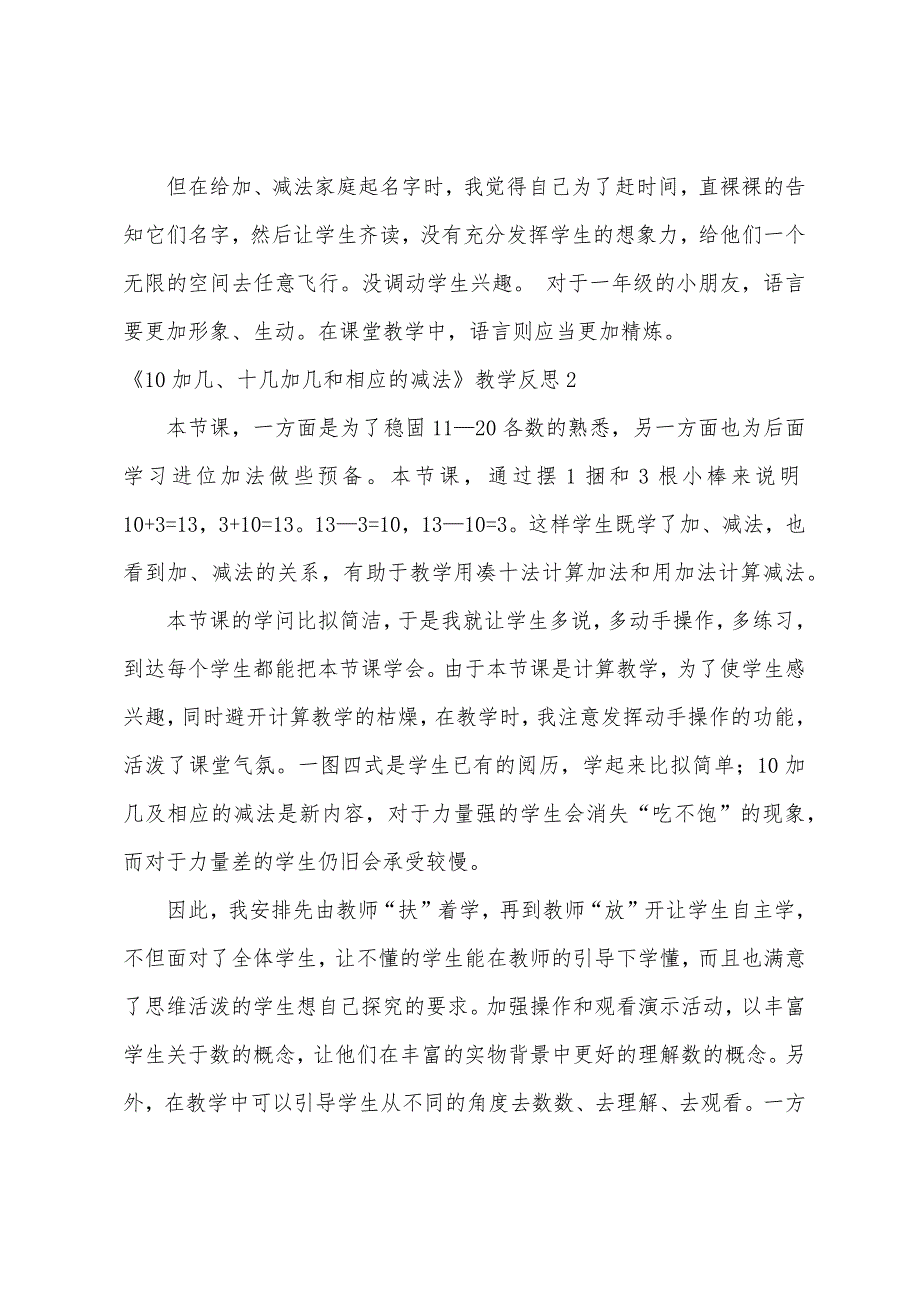 但在给加、减法家庭起名字时，我觉得自己为了赶时间，直裸裸的告
知它们名字，然后让学生齐读，没有充分发挥学生的想象力，给他们一个
无限的空间去任意飞行。没调动学生兴趣。 对于一年级的小朋友，语言
要更加形象、生动。在课堂教学中，语言则应当更加精炼。
《10 加几、十几加几和相应的减法》教学反思 2
本节课，一方面是为了稳固 11—20 各数的熟悉，另一方面也为后面
学习进位加法做些预备。本节课，通过摆 1 捆和 3 根小棒来说明
10+3=13，3+10=13。13—3=10，13—10=3。这样学生既学了加、减法，也
看到加、减法的关系，有助于教学用凑十法计算加法和用加法计算减法。
本节课的学问比拟简洁，于是我就让学生多说，多动手操作，多练习，
到达每个学生都能把本节课学会。由于本节课是计算教学，为了使学生感
兴趣，同时避开计算教学的枯燥，在教学时，我注意发挥动手操作的功能，
活泼了课堂气氛。一图四式是学生已有的阅历，学起来比拟简单；10 加
几及相应的减法是新内容，对于力量强的学生会消失“吃不饱”的现象，
而对于力量差的学生仍旧会承受较慢。
因此，我安排先由教师“扶”着学，再到教师“放”开让学生自主学，
不但面对了全体学生，让不懂的学生能在教师的引导下学懂，而且也满意
了思维活泼的学生想自己探究的要求。加强操作和观看演示活动，以丰富
学生关于数的概念，让他们在丰富的实物背景中更好的理解数的概念。另
外，在教学中可以引导学生从不同的角度去数数、去理解、去观看。一方